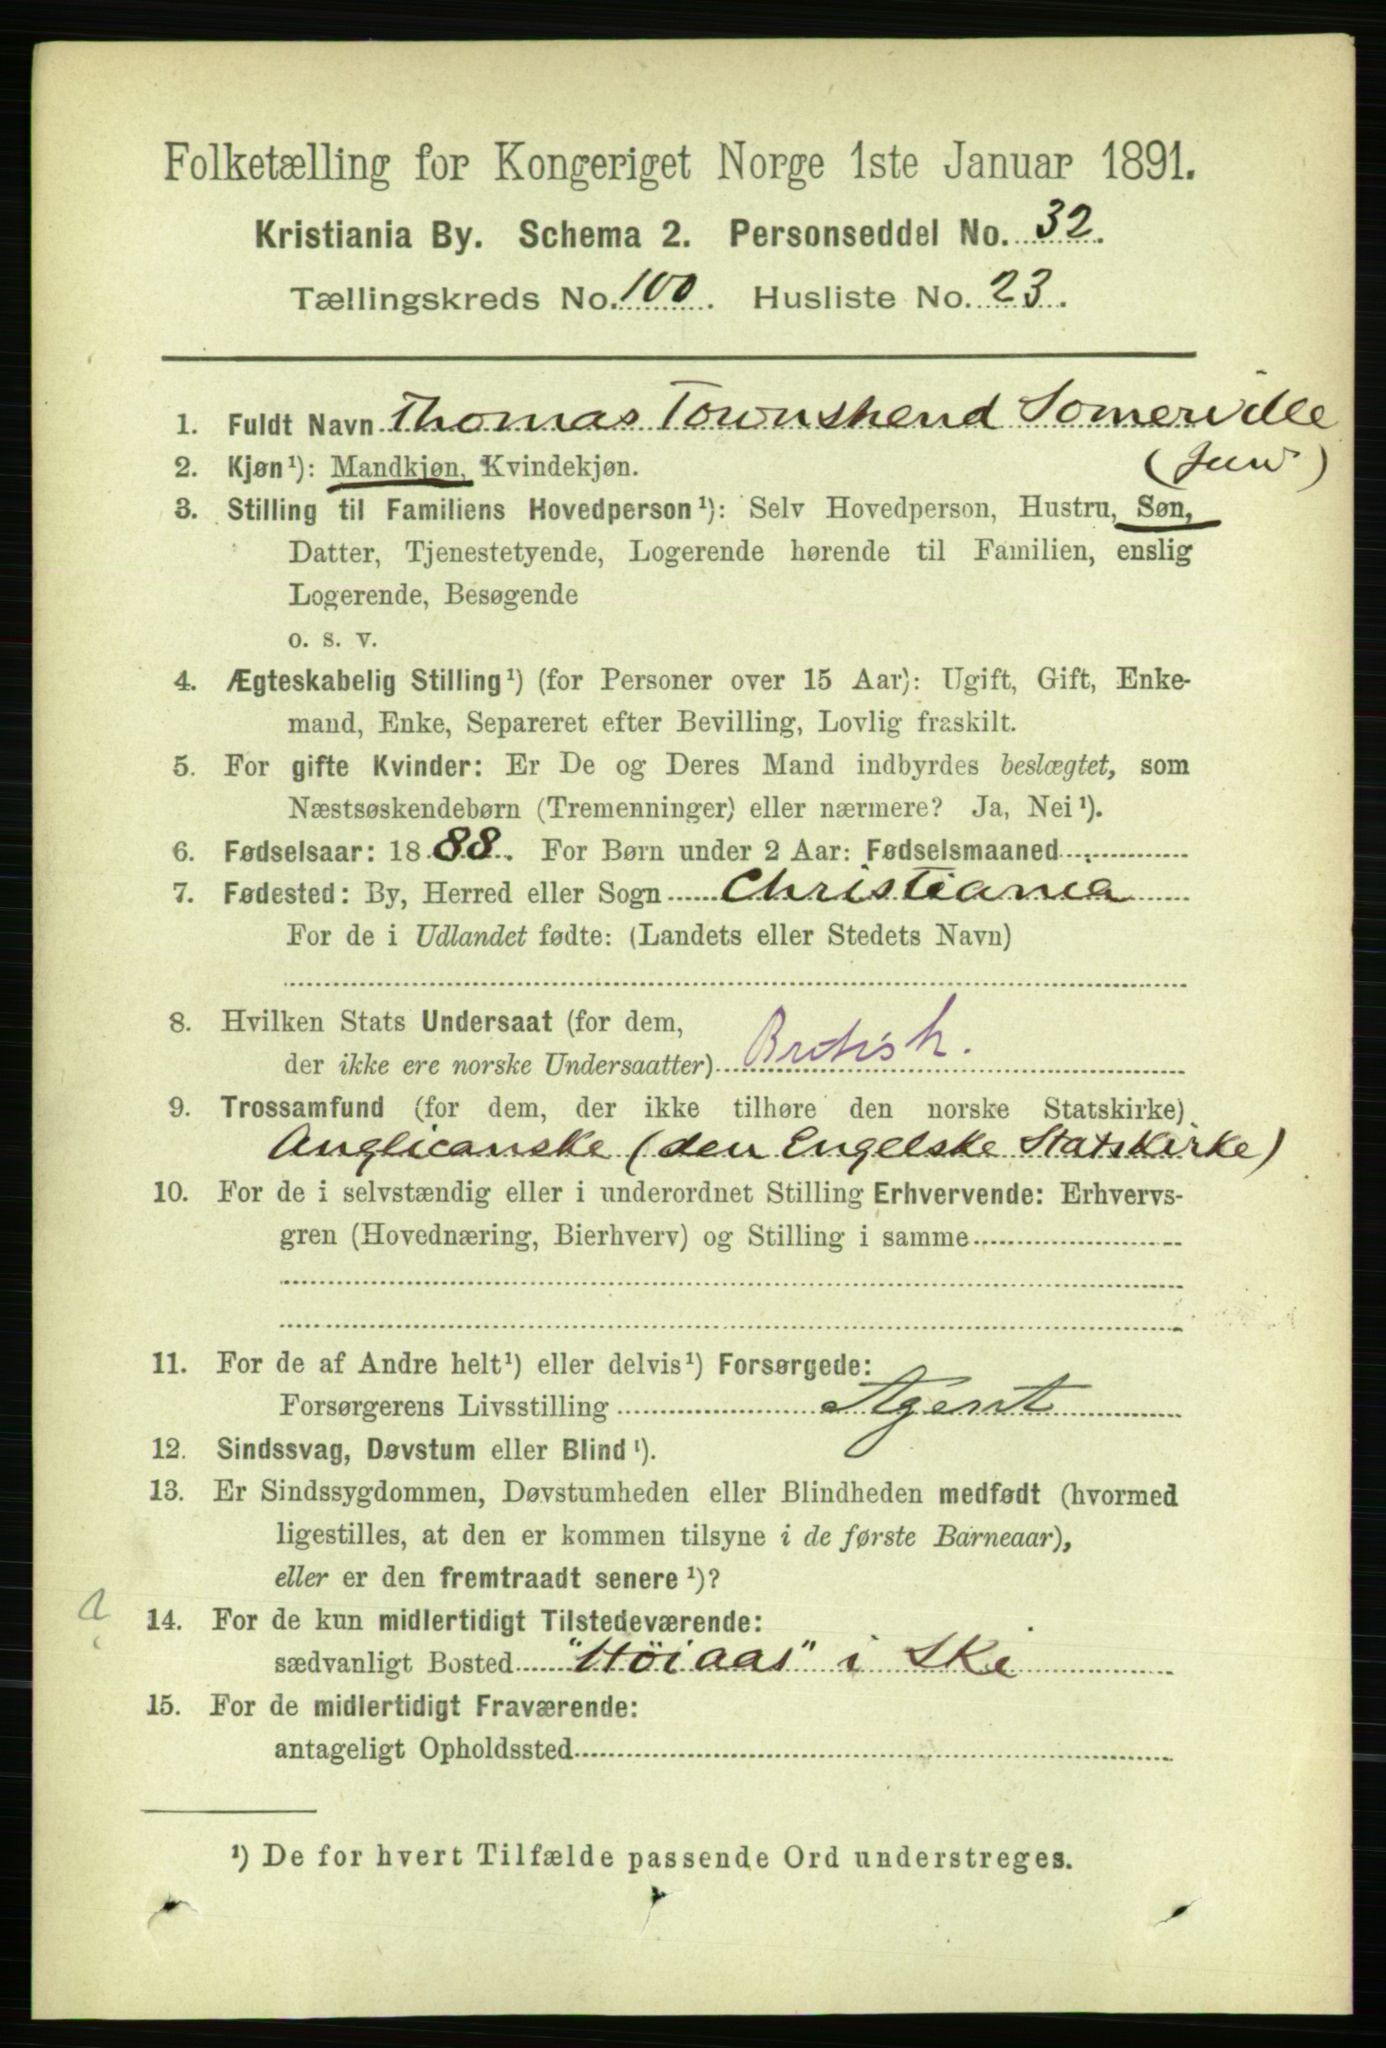 Folketælling for Kongeriget Norge 1ste Januar 1891.
Kristiania By. Schema 2. Personseddel No. 32.
Tællingskreds No. 100. Husliste No. 23.
1. Fuldt Navn Thomas Townshend Somerville
(Jun)
2. Kjøn¹): Mandkjøn, Kvindekjøn.
3. Stilling til Familiens Hovedperson¹): Selv Hovedperson, Hustru, Søn,
Datter, Tjenestetyende, Logerende hørende til Familien, enslig
Logerende, Besøgende
o. s. v.
4. Ægteskabelig Stilling¹) (for Personer over 15 Aar): Ugift, Gift, Enke-
mand, Enke, Separeret efter Bevilling, Lovlig fraskilt.
5. For gifte Kvinder: Er De og Deres Mand indbyrdes beslægtet, som
Næstsøskendebørn (Tremenninger) eller nærmere? Ja, Nei¹).
6. Fødselsaar: 1888. For Børn under 2 Aar: Fødselsmaaned
7. Fødested: By, Herred eller Sogn Christiania
For de i Udlandet fødte: (Landets eller Stedets Navn)
8. Hvilken Stats Undersaat (for dem,
der ikke ere norske Undersaatter) British.
9. Trossamfund (for dem, der ikke tilhøre den norske Statskirke)
Anglicanske (den Engelske Statskirke)
10. For de i selvstændig eller i underordnet Stilling Erhvervende: Erhvervs-
gren (Hovednæring, Bierhverv) og Stilling i samme
11. For de af Andre helt¹) eller delvis¹) Forsørgede:
Forsørgerens Livsstilling Agent
12. Sindssvag, Døvstum eller Blind¹).
13. Er Sindssygdommen, Døvstumheden eller Blindheden medfødt (hvormed
ligestilles, at den er kommen tilsyne i de første Barneaar),
eller er den fremtraadt senere¹)?
14. For de kun midlertidigt Tilstedeværende:
sædvanligt Bosted "Höiaas" i Ski
15. For de midlertidigt Fraværende:
antageligt Opholdssted
¹) De for hvert Tilfælde passende Ord understreges.